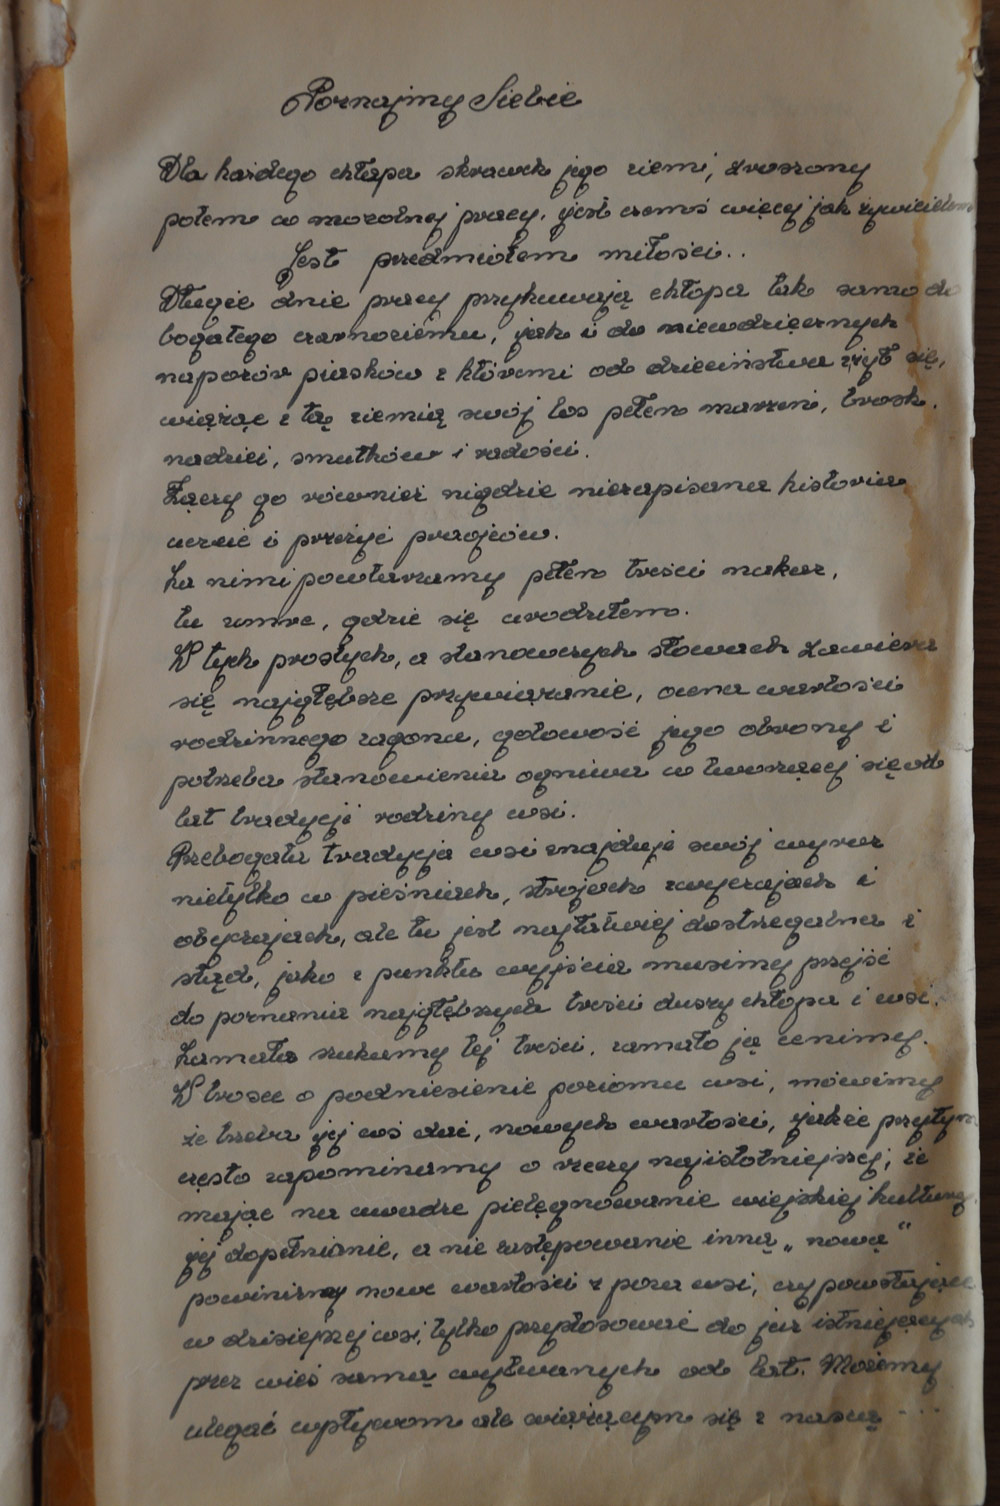 Poznajmy Siebie
Dla każdego chłopa skrawek jego ziemi, zroszony
potem w mozolnej pracy, jest czemś więcej jak żywicielem
Jest przedmiotem miłości..
Długie dnie pracy przykuwają chłopa tak samo do
bogatego czarnoziemu, jak i do niewdzięcznych
napozór piasków z któremi od dzieciństwa zżył się,
wiążąc z tą ziemią swój los pełen marzeń, trosk,
nadziei, smutków i radości.
Łączy go również nigdzie niezapisana historia
uczuć i przeżyć praojców.
Za nimi powtarzamy pełen treści nakaz,
tu umrę, gdzie się urodziłem.
W tych prostych, a stanowczych słowach zawiera
się najgłębsze przywiązanie, ocena wartości
rodzinnego zagonu, gotowość jego obrony i
potrzeba stanowienia ogniwa w tworzącej się od
lat tradycji rodziny wsi.
Przebogata tradycja wsi znajduje swój wyraz
nietylko w pieśniach, strojach zwyczajach i
obyczajach, ale tu jest najłatwiej dostrzegalna i
stąd, jako z punktu wyjścia musimy przejść
do poznania najgłębszych treści duszy chłopa i wsi.
Zamało szukamy tej treści, zamało ją cenimy.
W trosce o podniesienie poziomu wsi, mówimy
że trzeba jej coś dać, nowych wartości, jakże przytym
często zapominamy o rzeczy najistotniejszej, że
mając na uwadze pielęgnowanie wiejskiej kultury,
jej dopełnianie, a nie zastępowanie inną „nową“
powinismy nowe wartości z poza wsi, czy powstające
w dzisiejszej wsi, tylko przystosować do już istniejących
przez wieś samą wytwarzanych od lat. Możemy
ulegać wpływom ale wiążącym się z naszą ...